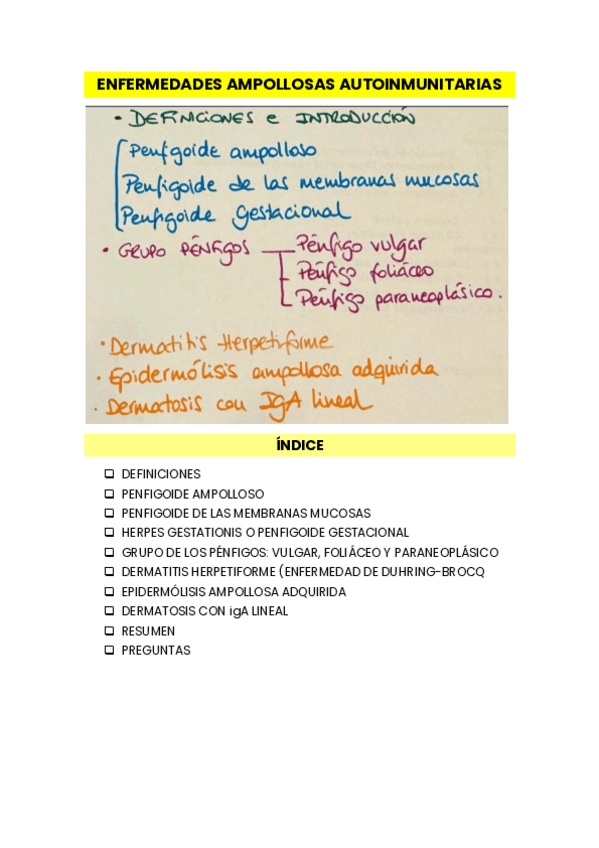 ENFERMEDADES AMPOLLOSAS AUTOINMUNITARIAS
• DEFINICIONES e INTRODUCCIÓN
Penfigoide ampolloso
Penfigoide de las membranas mucosas
Penfigoide Gestacional
• GRUPO PÉNFIGOS
Pénfigo vulgar
Pénfigo foliáceo
Pénfigo paraneoplásico.
• Dermatitis Herpetiforme
• Epidermólisis ampollosa adquirida
• Dermatosis con IgA lineal
ÍNDICE
❑ DEFINICIONES
❑ PENFIGOIDE AMPOLLOSO
❑ PENFIGOIDE DE LAS MEMBRANAS MUCOSAS
❑ HERPES GESTATIONIS O PENFIGOIDE GESTACIONAL
❑ GRUPO DE LOS PÉNFIGOS: VULGAR, FOLIÁCEO Y PARANEOPLÁSICO
❑ DERMATITIS HERPETIFORME (ENFERMEDAD DE DUHRING-BROCQ
❑ EPIDERMÓLISIS AMPOLLOSA ADQUIRIDA
❑ DERMATOSIS CON igA LINEAL
❑ RESUMEN
❑ PREGUNTAS